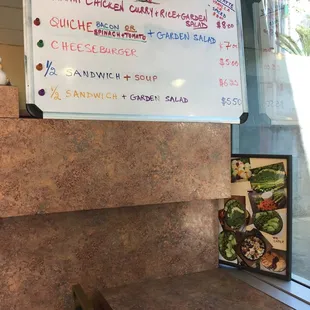 CHICKEN CURRY+RICE+GARDEN SALAD $8.00
QUICHE BACON OR SPINACH+TOMATO + GARDEN SALAD
CHEESEBURGER $5.00
½ SANDWICH + SOUP
½ SANDWICH + GARDEN SALAD $5.50